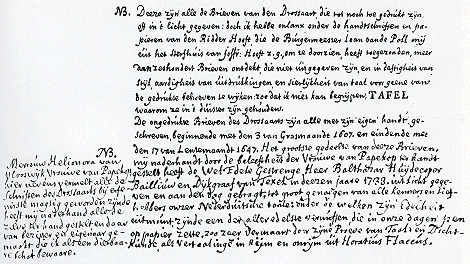 NB. Deeze zijn alle de Brieven van den Drossaart, die tot noch toe gedrukt zijn,
oft in 't licht gegeven: doch ik hebbe onlanx onder de handtschriften en pa-
pieren van den Ridder Hooft die de Burgermeester Joan vande Poll mij
uit het Sterfhuis van Joffr. Hooft z.g. om te doorzien heeft toegezonden, meer
dan zeshondert Brieven ontdekt, die niet uitgegeven zijn, en in deftigheit van
stijl, aardigheit van uitdrukkingen en sierlijkheit van taal voor geene van
de gedrukte behoeven te wijken zoo dat ik niet kan begrijpen, TAFEL
waarom ze in 't duister zijn gehouden.
De ongedrukte Brieven des Drossaarts zijn alle met zijn' eigen' handt ge-
schreven, beginnende met den 3 van Grasmaandt 1607. en eindende met
den 17 van Lentemaandt 1647. Het grootste gedeelte van deeze Brieven,
mij naderhandt door de beleeftheit der Vrouwe van Papekop ter handt
gestelt heeft de Wel Edele Gestrenge Heer Balthazar Huydecoper
Bailliuw en Dijkgraaf van Texel in deezen jaare 1738. in 't licht gegee-
ven en aan den dag gebragt, tot groot genoegen van alle kenners en lief-
hebbers onzer Nederduitsche taale: onder de welken zijn Ed.heit
uitmunt zijnde een der alleredelste vernuften die in onze dagen pen
op papier zette, zoo zeer vermaart door zijne Proeve van Taal- en Dicht-
kunde als Vertaalinge in Rijm en onrijm uit Horatius Flaccus.
NB.
Mevrouw Helionora van
Ylorswijk Vrouwe van Papekop
hier nevens vermelt alle de
schriften des Drossaarts bij erfe-
nisse magtig geworden zijnde
heeft mij naderhand alle de
zelve ter hand gestelt en daar
van bezitter en eigenaar ge-
maakt die ik als een dierbaa-
re schat bewaare.